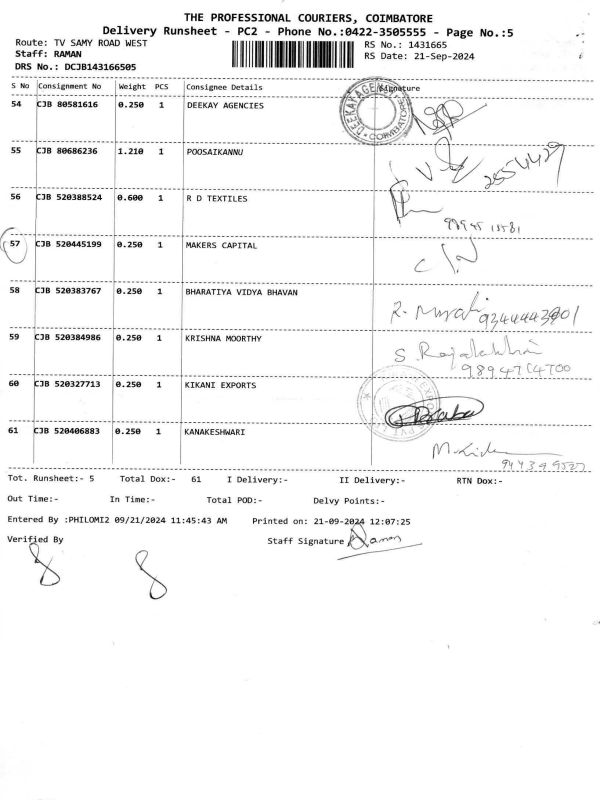 THE PROFESSIONAL COURIERS, COIMBATORE
Delivery Runsheet - PC2 - Phone No.:0422-3505555 - Page No.:5
Route: TV SAMY ROAD WEST RS No.: 1431665
Staff: RAMAN RS Date: 21-Sep-2024
DRS No.: DCJB143166505
S No Consignment No Weight PCS Consignee Details Signature
54 CJB 80581616 0.250 1 DEEKAY AGENCIES
DEEKAY AGENCY COIMBATORE
55 CJB 80686236 1.210 1 POOSAIKANNU
2554429
56 CJB 520388524 0.600 1 R D TEXTILES
98945 15581
57 CJB 520445199 0.250 1 MAKERS CAPITAL
58 CJB 520383767 0.250 1 BHARATIYA VIDYA BHAVAN
R. Murali
59 CJB 520384986 0.250 1 KRISHNA MOORTHY
S. Rajalakshmi
9894704700
60 CJB 520327713 0.250 1 KIKANI EXPORTS
61 CJB 520406883 0.250 1 KANAKESHWARI
Tot. Runsheet:- 5 Total Dox:- 61 I Delivery:- II Delivery:- RTN Dox:-
Out Time:- In Time:- Total POD:- Delvy Points:-
Entered By :PHILOMI2 09/21/2024 11:45:43 AM Printed on: 21-09-2024 12:07:25
Verified By Staff Signature Raman